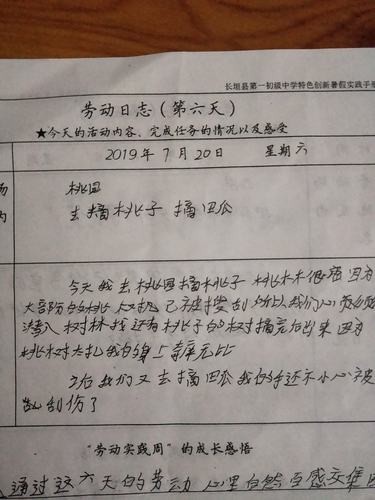 长垣县第一初级中学特色创新暑假实践手册
劳动日志(第六天)
★今天的活动内容、完成任务的情况以及感受
2019年7月20日 星期六
场 桃园
内 去摘桃子 摘田瓜
今天我去桃园摘桃子 桃木木很痛因为
大部份的桃 已被 刮 所以我们必须
潜入树林找还有桃子的树摘完后出来 因为
桃树太扎我的身上痒无比
之后我们又去摘田瓜我的手还不小心被
刮伤了
"劳动实践周"的成长感悟
通过这六天的劳动 心里自然百感交集